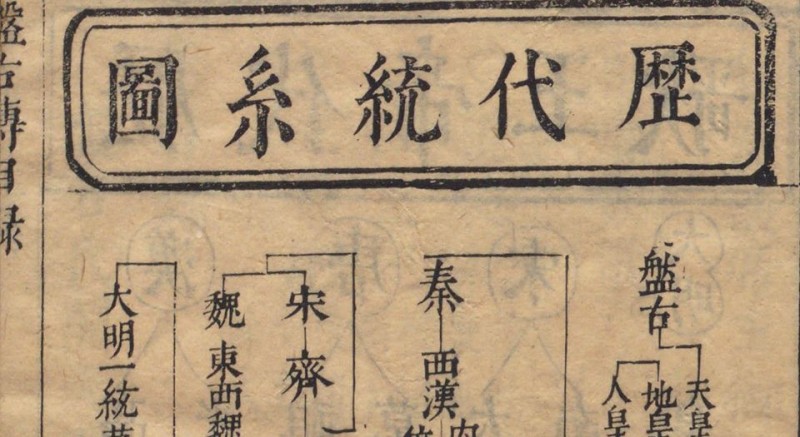 歷代統系圖
盤古
天皇
地皇
人皇
秦
西漢
宋
齊
魏
東西魏
大明一統
盤古傳目録